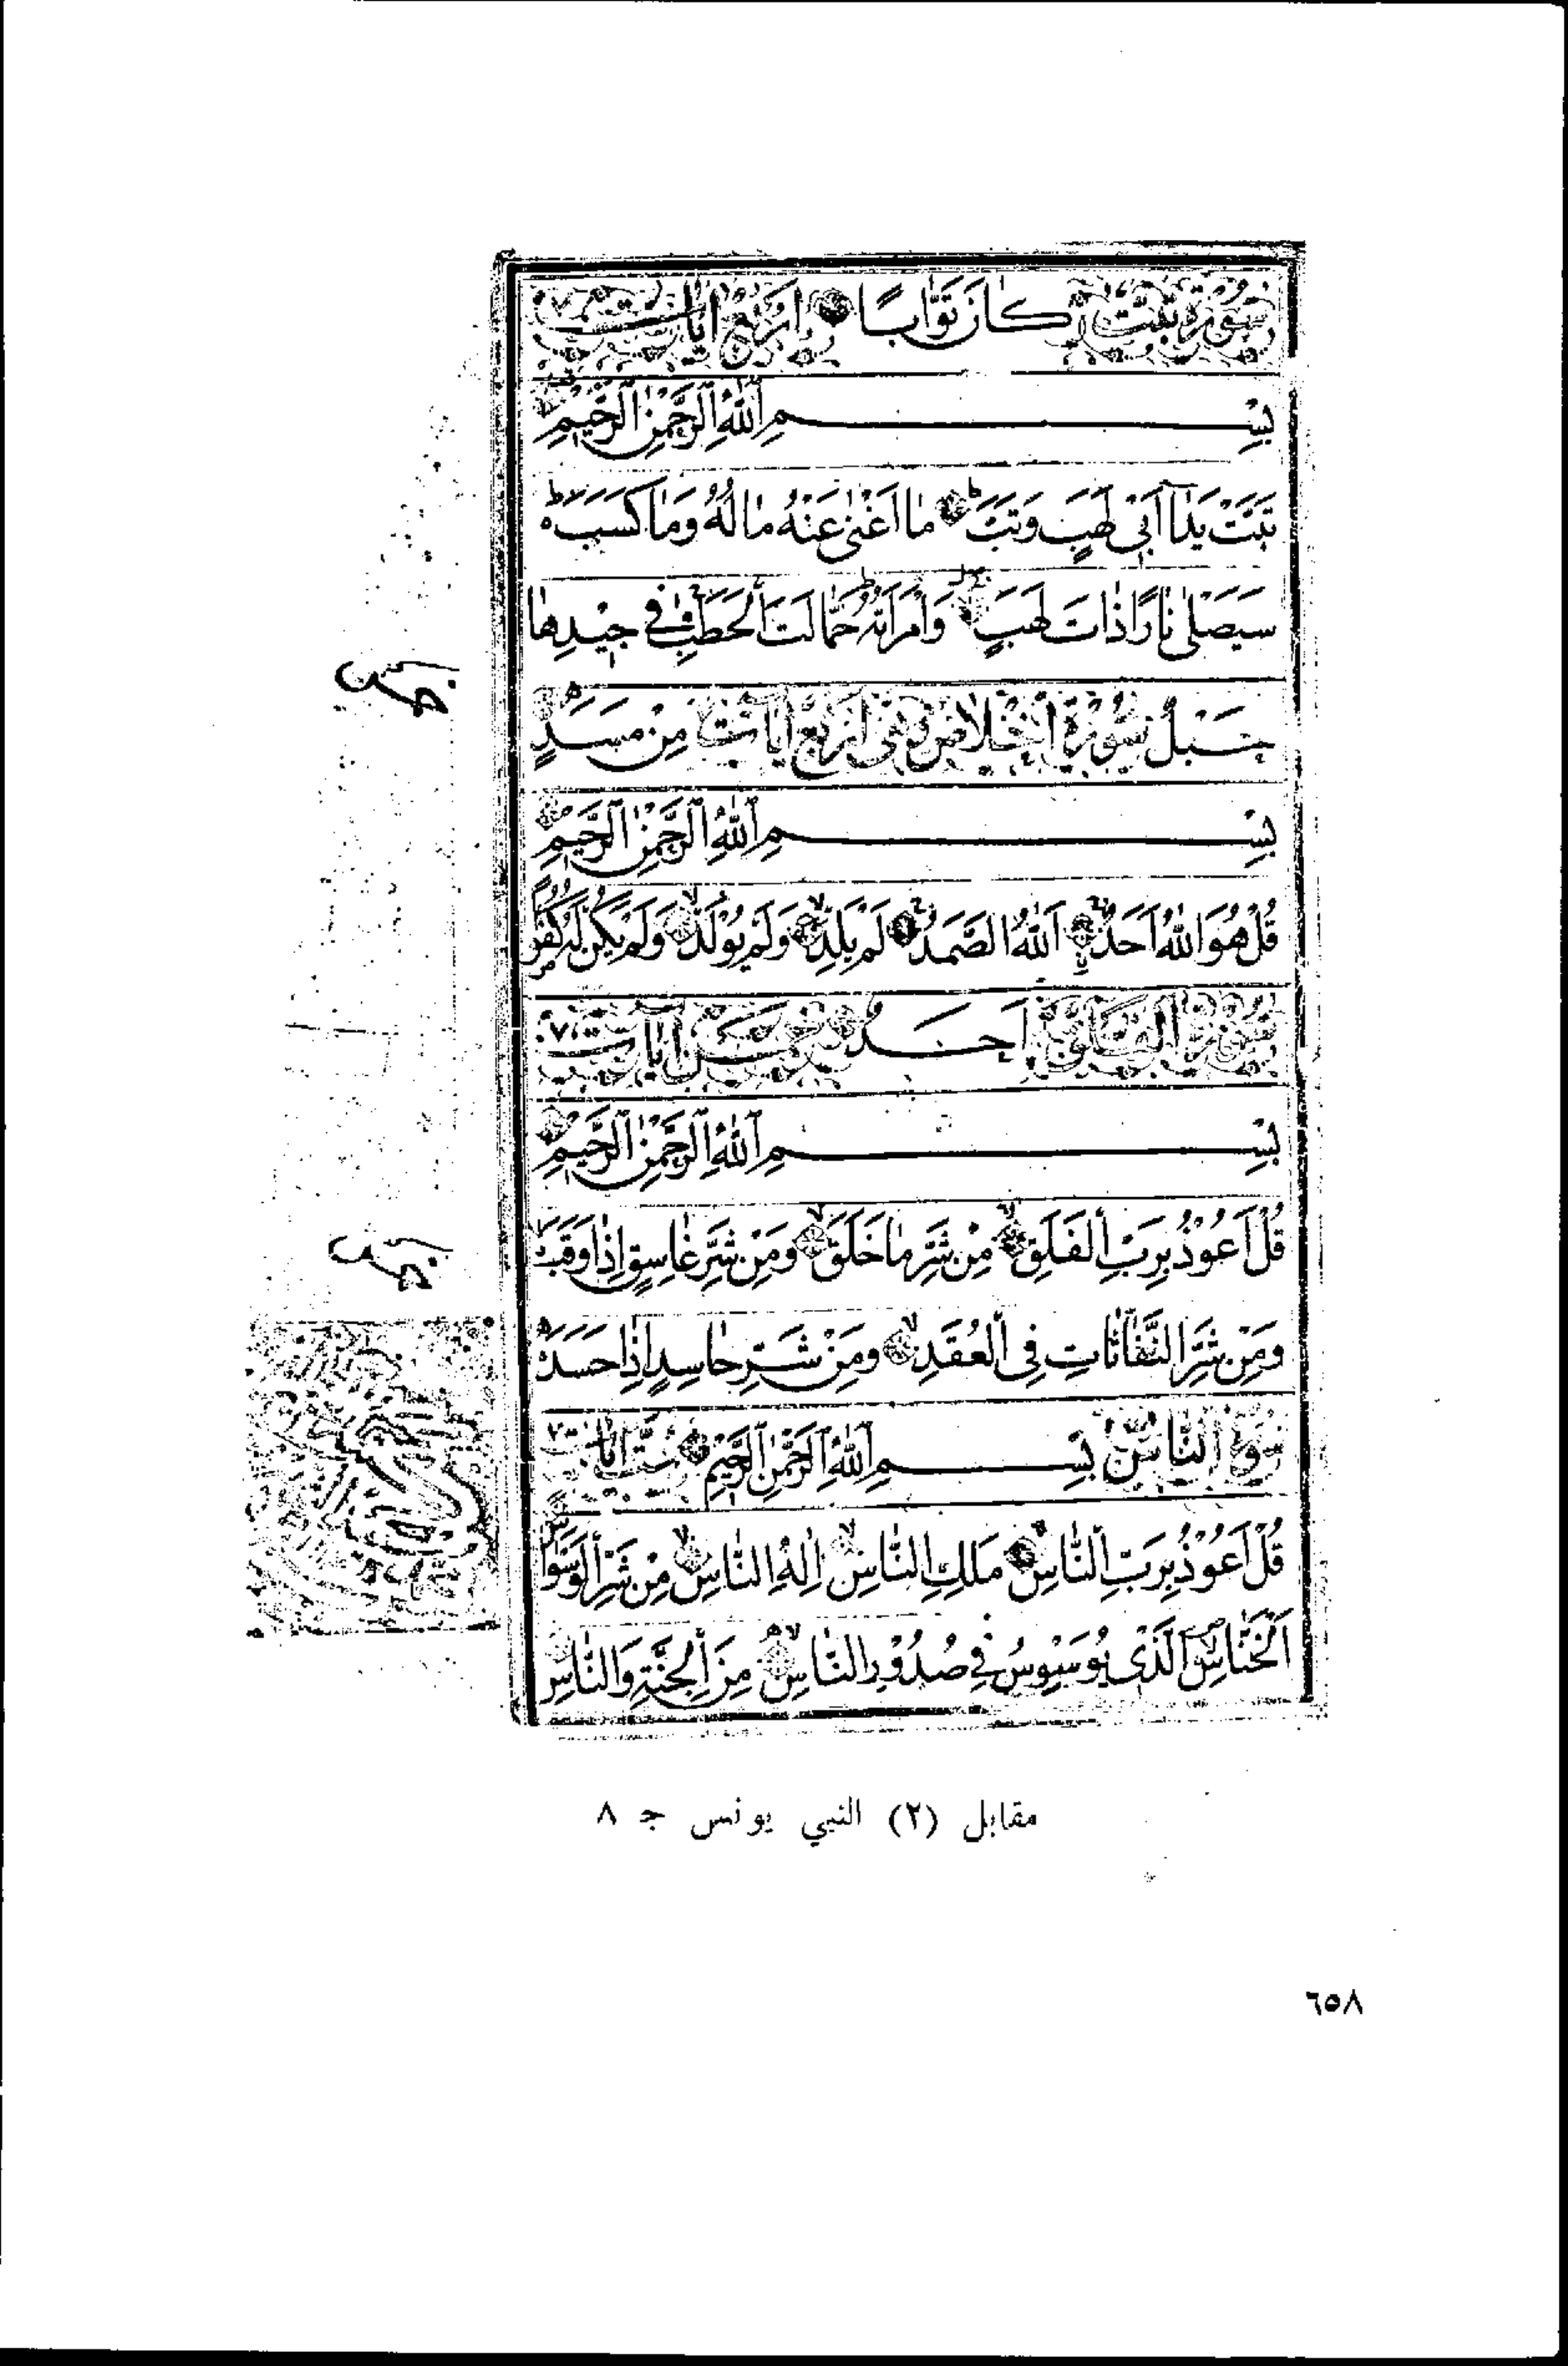 سورة تبت كان توابا اربع ايات
بِسْمِ اللهِ الرَّحْمٰنِ الرَّحِيمِ
تَبَّتْ يَدَا اَبِى لَهَبٍ وَتَبَّ مَا اَغْنٰى عَنْهُ مَالُهُ وَمَا كَسَبَ
سَيَصْلٰى نَارًا ذَاتَ لَهَبٍ وَامْرَاَتُهُ حَمَّالَتَ الْحَطَبِ فِى جِيْدِهَا
حَبْلٌ سورة اخلاص وهى اربع ايات مِنْ مَسَدٍ
بِسْمِ اللهِ الرَّحْمٰنِ الرَّحِيمِ
قُلْ هُوَ اللهُ اَحَدٌ اَللهُ الصَّمَدُ لَمْ يَلِدْ وَلَمْ يُوْلَدْ وَلَمْ يَكُنْ لَهُ كُفُوًا
سورة الفلق اَحَدٌ خمس ايات
بِسْمِ اللهِ الرَّحْمٰنِ الرَّحِيمِ
قُلْ اَعُوْذُ بِرَبِّ الْفَلَقِ مِنْ شَرِّ مَا خَلَقَ وَمِنْ شَرِّ غَاسِقٍ اِذَا وَقَبَ
وَمِنْ شَرِّ النَّفَّاثَاتِ فِى الْعُقَدِ وَمِنْ شَرِّ حَاسِدٍ اِذَا حَسَدَ
سورة الناس بِسْمِ اللهِ الرَّحْمٰنِ الرَّحِيمِ ست ايات
قُلْ اَعُوْذُ بِرَبِّ النَّاسِ مَلِكِ النَّاسِ اِلٰهِ النَّاسِ مِنْ شَرِّ الْوَسْوَاسِ
اَلْخَنَّاسِ اَلَّذِى يُوَسْوِسُ فِى صُدُوْرِ النَّاسِ مِنَ الْجِنَّةِ وَالنَّاسِ
مقابل (٢) النبي يونس جـ ٨
٦٥٨